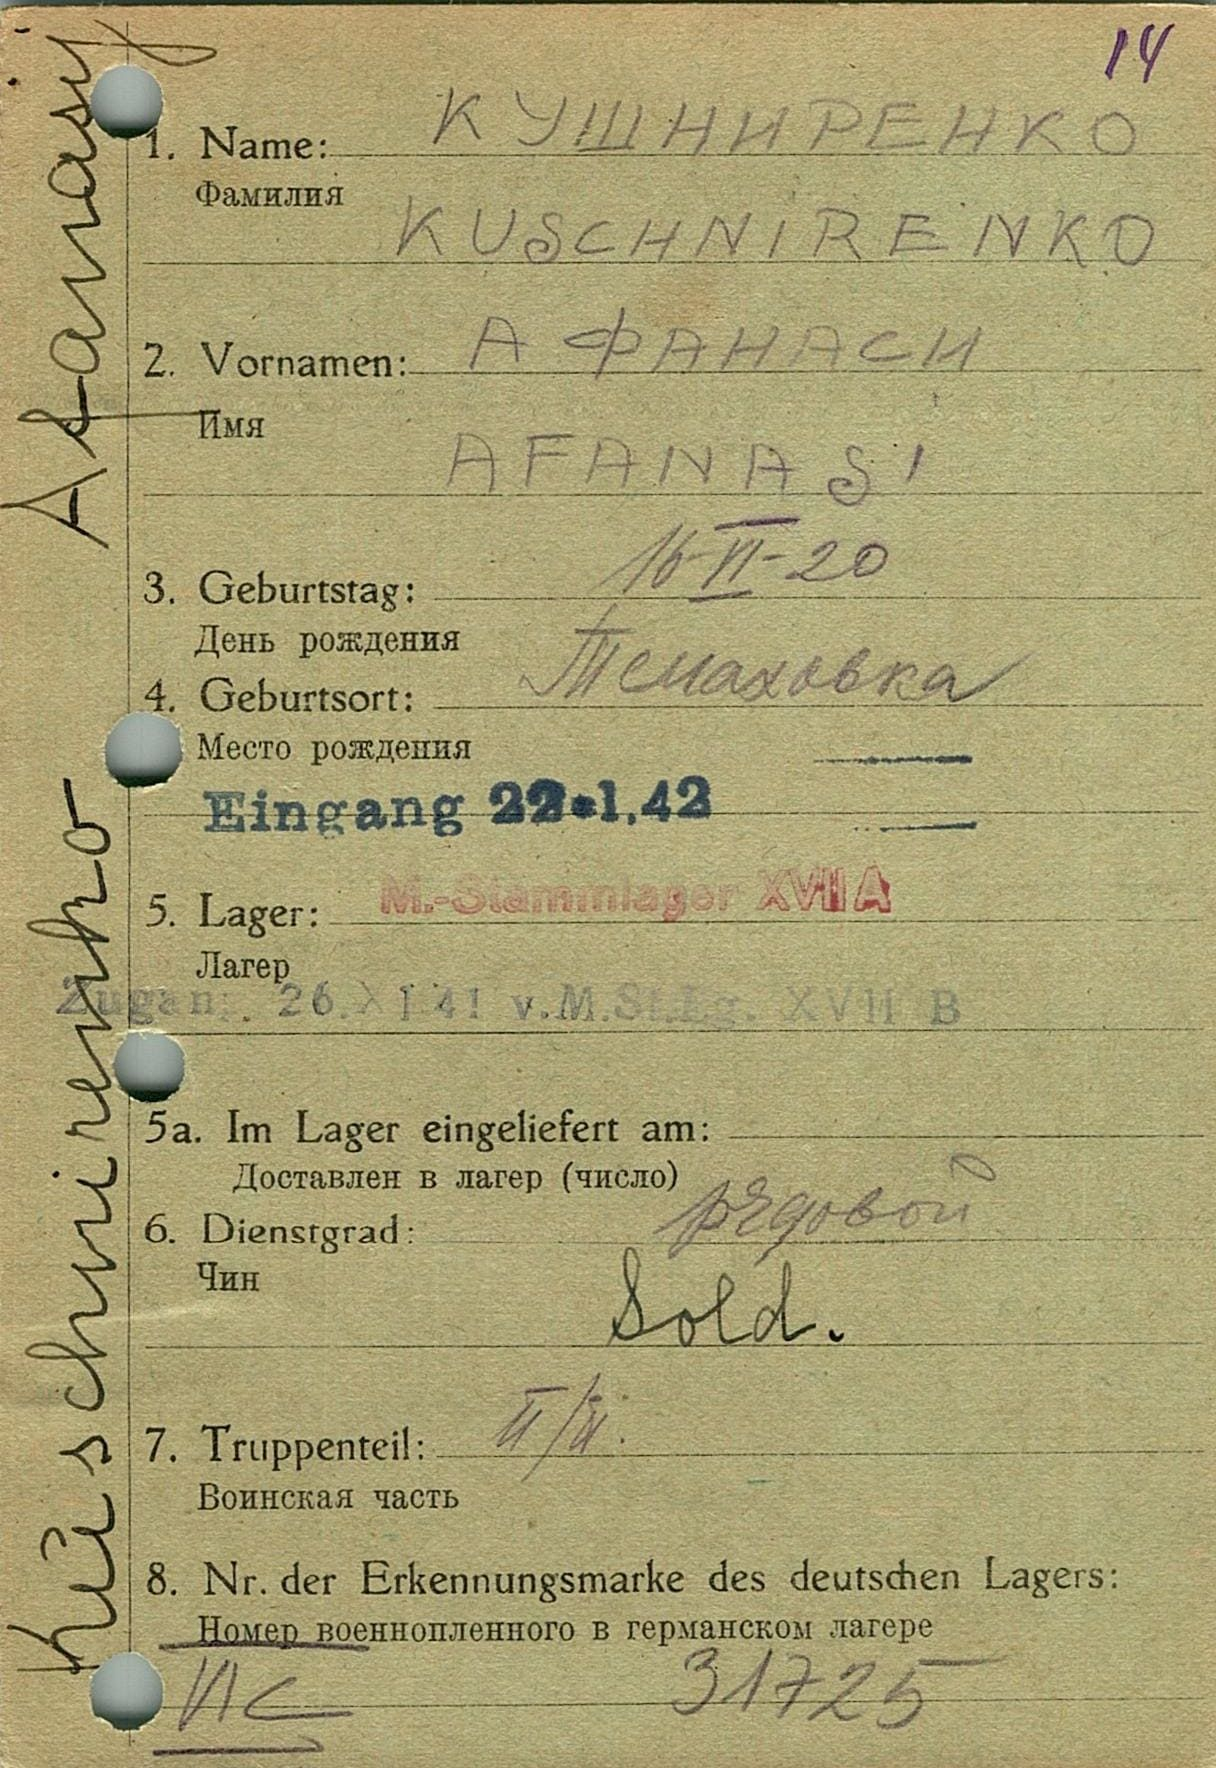 14
1. Name: КУШНИРЕНКО
Фамилия
KUSCHNIRENKO
2. Vornamen: АФАНАСИ
Имя
AFANASI
3. Geburtstag: 16-VI-20
День рождения
4. Geburtsort:
Место рождения
Eingang 22.1.42
5. Lager: M.-Stammlager XVII A
Лагер
Zugan: 26.XI 41 v.M.St.Lg. XVII B
5a. Im Lager eingeliefert am:
Доставлен в лагер (число)
6. Dienstgrad: рядовой
Чин
Sold.
7. Truppenteil:
Воинская часть
8. Nr. der Erkennungsmarke des deutschen Lagers:
Номер военнопленного в германском лагере
31725
Kuschnirenko Afanasij